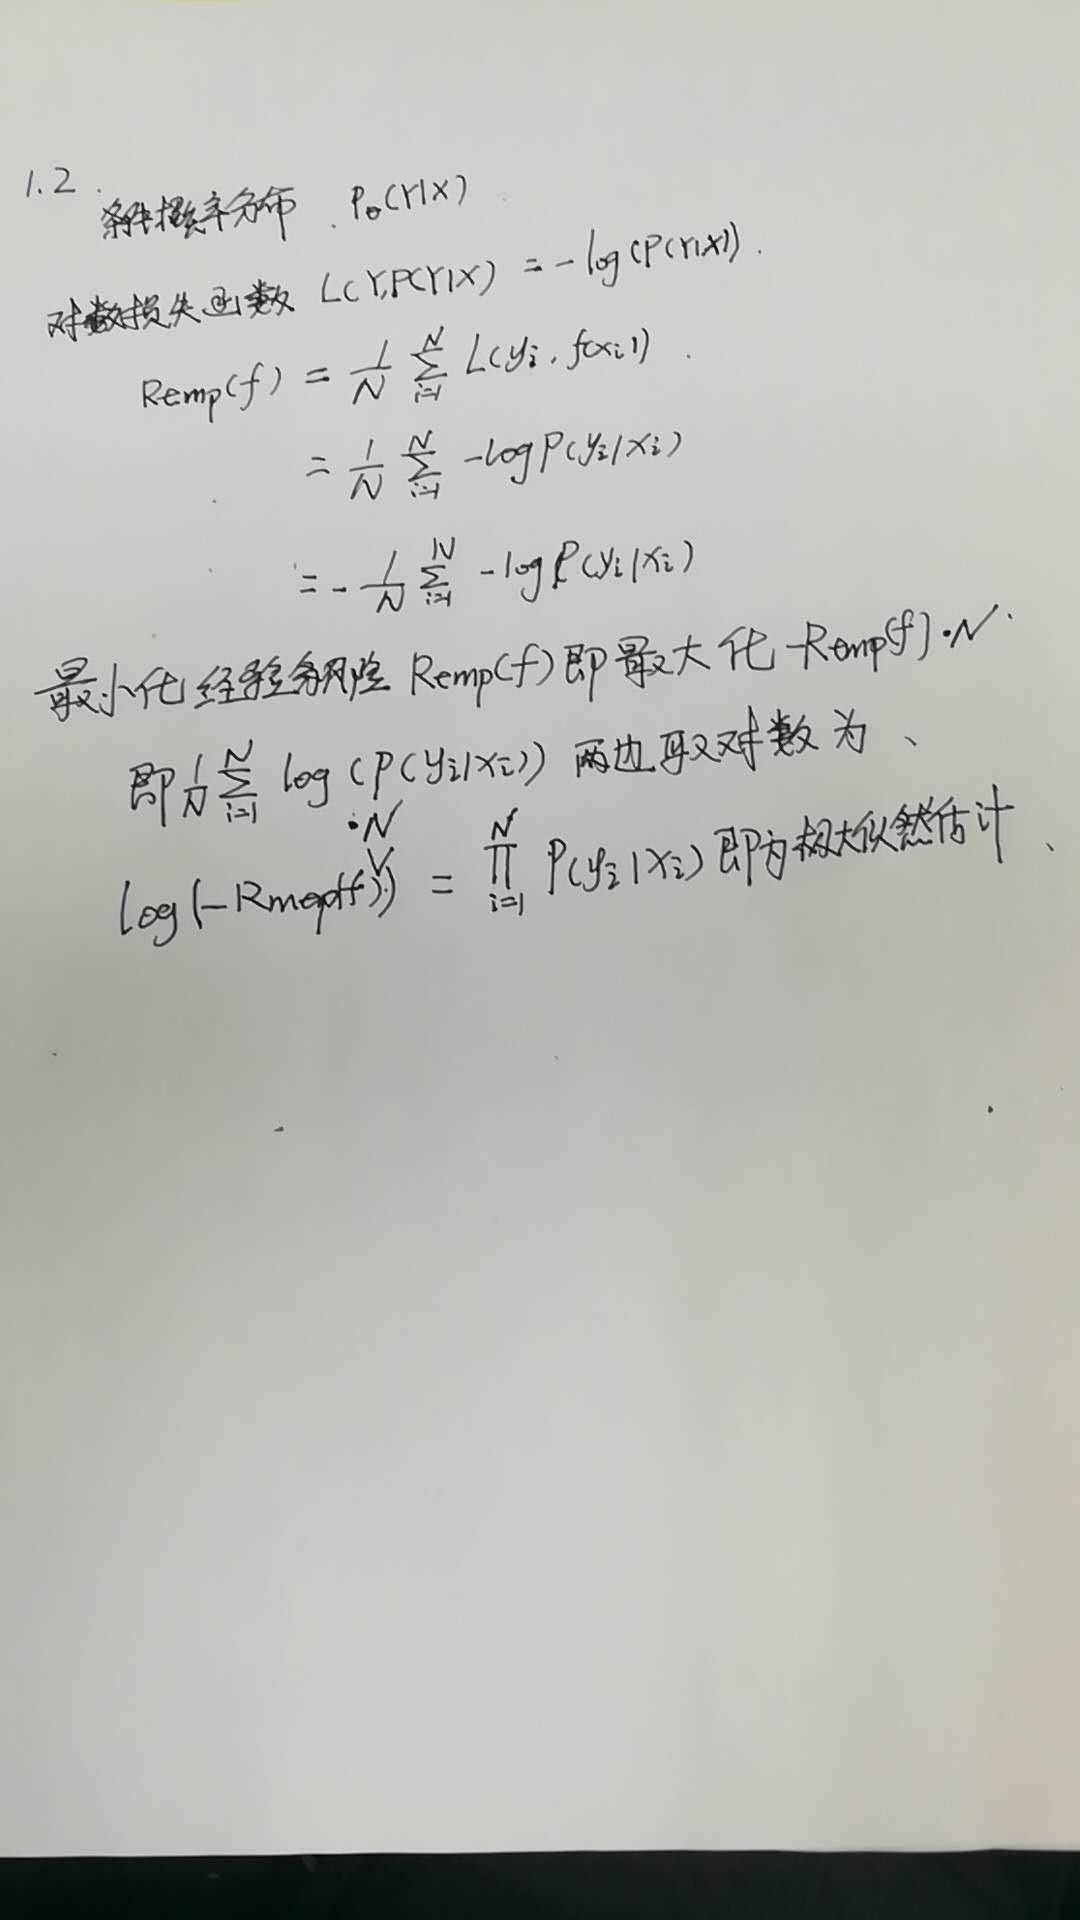 1.2.
条件概率分布. P_θ(Y|X)
对数损失函数 L(Y,P(Y|X) = -log(P(Y|X)).
Remp(f) = 1/N ∑_{i=1}^{N} L(y_i, f(x_i)).
= 1/N ∑_{i=1}^{N} -logP(y_i|x_i)
= -1/N ∑_{i=1}^{N} -logP(y_i|x_i)
最小化经验风险 Remp(f)即最大化 -Remp(f)·N.
即 1/N ∑_{i=1}^{N} log(P(y_i|x_i)) 两边取对数为、
log(-Rmepf(f)·N) = ∏_{i=1}^{N} P(y_i|x_i) 即为极大似然估计、